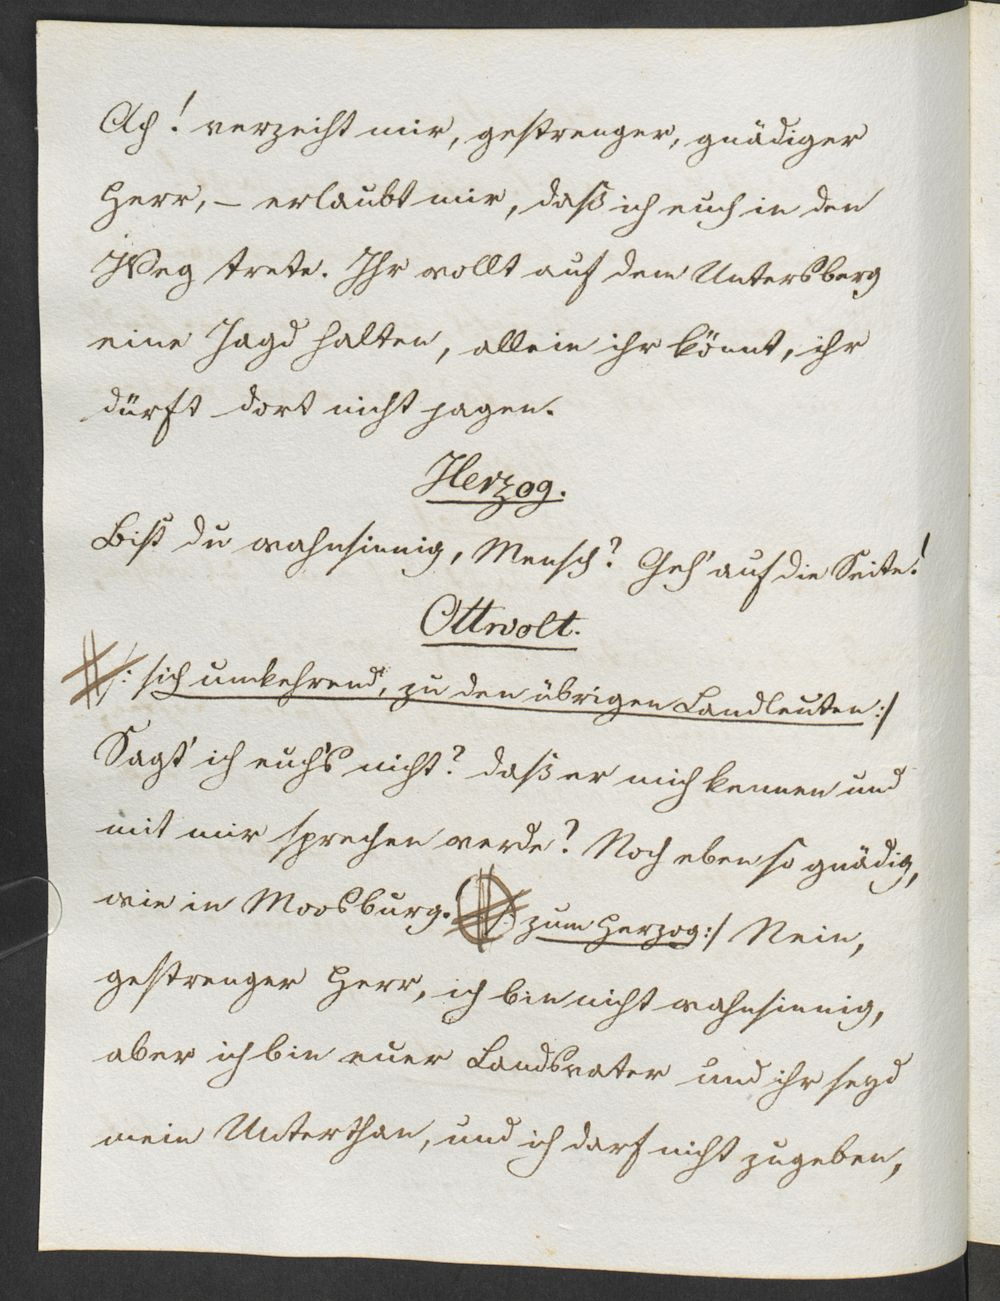 Ach! verzeiht mir, gestrenger, gnädiger
Herr, – erlaubt mir, daß ich euch in den
Weg trete. Ihr wollt auf dem Untersberg
eine Jagd halten, allein ihr könnt, ihr
dürft dort nicht jagen.
Herzog.
Bist du wahnsinnig, Mensch? Geh' auf die Seite!
Ottwolt.
/: sich umkehrend, zu den übrigen Landleuten :/
Sagt' ich euch's nicht? daß er mich kennen und
mit mir sprechen werde? Noch eben so gnädig,
wie in Moosburg. /: zum Herzog :/ Nein,
gestrenger Herr, ich bin nicht wahnsinnig,
aber ich bin euer Landsvater und ihr seyd
mein Unterthan, und ich darf nicht zugeben,